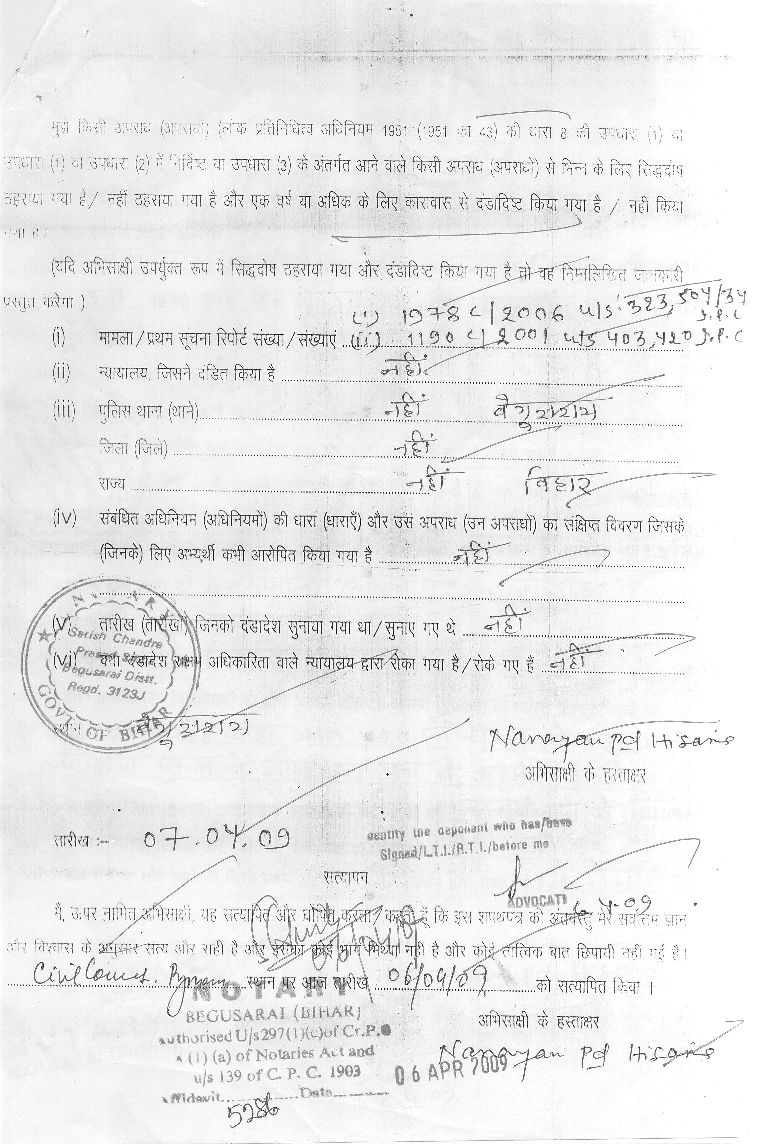 मुझे किसी अपराध (अपराधों) (लोक प्रतिनिधित्व अधिनियम 1951 (1951 का 43) की धारा 8 की उपधारा (1) या
उपधारा (1) या उपधारा (2) में निर्दिष्ट या उपधारा (3) के अंतर्गत आने वाले किसी अपराध (अपराधों) से भिन्न के लिए सिद्धदोष
ठहराया गया है / नहीं ठहराया गया है और एक वर्ष या अधिक के लिए कारावास से दंडादिष्ट किया गया है / नहीं किया
गया है।
(यदि अभिसाक्षी उपर्युक्त रूप में सिद्धदोष ठहराया गया और दंडादिष्ट किया गया है तो वह निम्नलिखित जानकारी
प्रस्तुत करेगा )
(i) 1978 C/2006 u/s 323, 504/34 I.P.C
(i) मामला / प्रथम सूचना रिपोर्ट संख्या / संख्याएं (ii) 1190 C/2001 u/s 403, 420 I.P.C
(ii) न्यायालय, जिसने दंडित किया है नहीं
(iii) पुलिस थाना (थाने) नहीं बेगुसराय
जिला (जिले) नहीं
राज्य नहीं बिहार
(iv) संबंधित अधिनियम (अधिनियमों) की धारा (धाराएँ) और उस अपराध (उन अपराधों) का संक्षिप्त विवरण जिसके
(जिनके) लिए अभ्यर्थी कभी आरोपित किया गया है नहीं
(v) तारीख (तारीखें) जिनको दंडादेश सुनाया गया था / सुनाए गए थे नहीं
(vi) क्या दंडादेश सक्षम अधिकारिता वाले न्यायालय द्वारा रोका गया है / रोके गए हैं नहीं
Satish Chandra
Prasad
Begusarai Distt.
Regd. 3123J
GOVT. OF BIHAR
बेगुसराय
Narayan Pd Hisaria
अभिसाक्षी के हस्ताक्षर
तारीख :- 07.04.09
identify the deponent who has/have
Signed/L.T.I./R.T.I./before me
सत्यापन
ADVOCATE
6.4.09
मैं, ऊपर नामित अभिसाक्षी, यह सत्यापित और घोषित करता / करती हूँ कि इस शपथपत्र की अंतर्वस्तु मेरे सर्वोत्तम ज्ञान
और विश्वास के अनुसार सत्य और सही है और इसका कोई भाग मिथ्या नहीं है और कोई तात्विक बात छिपायी नहीं गई है।
Civil Court स्थान पर आज तारीख 06/04/09 को सत्यापित किया ।
NOTARY
BEGUSARAI (BIHAR)
Authorised U/s 297(1)(c) of Cr.P.C
(1) (a) of Notaries Act and
u/s 139 of C. P. C. 1903
Affidavit Date
5286
अभिसाक्षी के हस्ताक्षर
06 APR 2009
Narayan Pd Hisaria